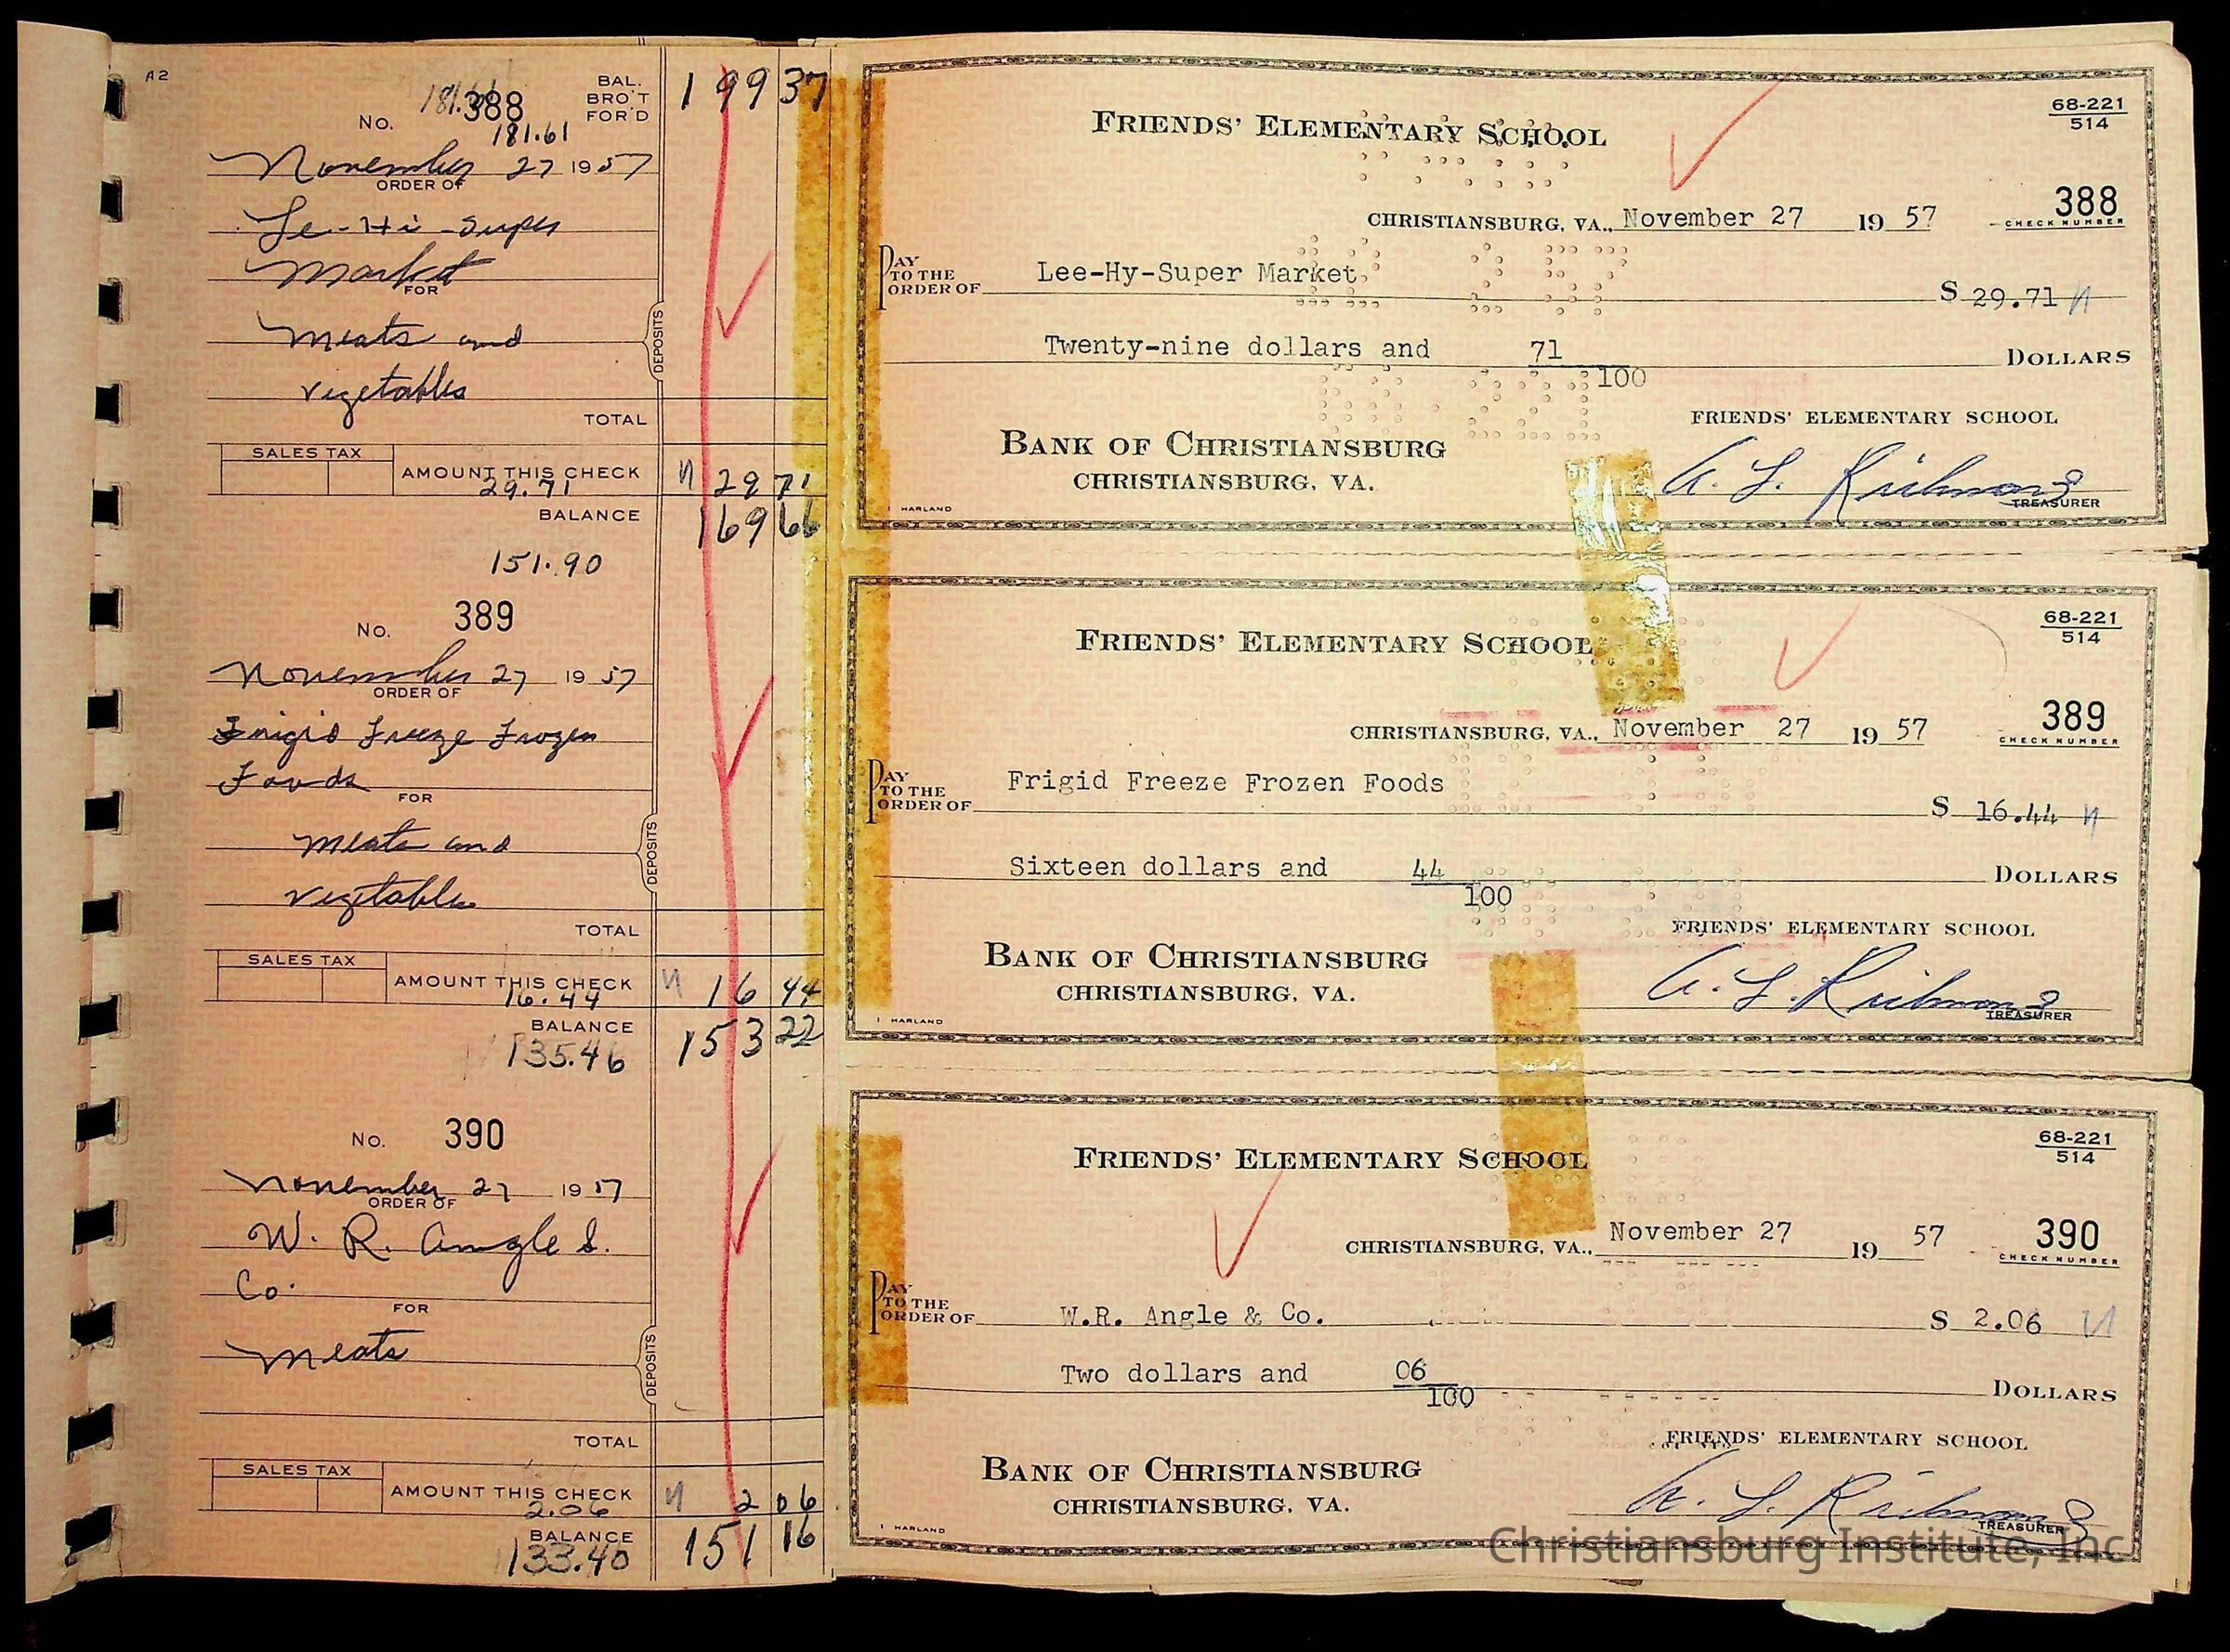 A2
181.61
No. 388
BAL. BRO'T FOR'D
199 37
181.61
November 27 1957
ORDER OF
Le-Hi-Super
Market
FOR
Meats and
vegetables
DEPOSITS
TOTAL
SALES TAX
AMOUNT THIS CHECK
29.71
29 71
BALANCE
169 66
151.90
FRIENDS' ELEMENTARY SCHOOL
68-221
514
388
CHECK NUMBER
CHRISTIANSBURG, VA., November 27 19 57
PAY TO THE ORDER OF Lee-Hy-Super Market
$ 29.71
Twenty-nine dollars and 71/100 DOLLARS
FRIENDS' ELEMENTARY SCHOOL
BANK OF CHRISTIANSBURG
CHRISTIANSBURG, VA.
A. L. Richmond
TREASURER
HARLAND
No. 389
November 27 19 57
ORDER OF
Frigid Freeze Frozen
Foods
FOR
Meats and
vegetables
DEPOSITS
TOTAL
SALES TAX
AMOUNT THIS CHECK
16.44
16 44
BALANCE
153 22
135.46
FRIENDS' ELEMENTARY SCHOOL
68-221
514
389
CHECK NUMBER
CHRISTIANSBURG, VA., November 27 19 57
PAY TO THE ORDER OF Frigid Freeze Frozen Foods
$ 16.44
Sixteen dollars and 44/100 DOLLARS
FRIENDS' ELEMENTARY SCHOOL
BANK OF CHRISTIANSBURG
CHRISTIANSBURG, VA.
A. L. Richmond
TREASURER
HARLAND
No. 390
November 27 1957
ORDER OF
W. R. Angle &
Co.
FOR
Meats
DEPOSITS
TOTAL
SALES TAX
AMOUNT THIS CHECK
2.06
2 06
BALANCE
151 16
133.40
FRIENDS' ELEMENTARY SCHOOL
68-221
514
390
CHECK NUMBER
CHRISTIANSBURG, VA., November 27 19 57
PAY TO THE ORDER OF W.R. Angle & Co.
$ 2.06
Two dollars and 06/100 DOLLARS
FRIENDS' ELEMENTARY SCHOOL
BANK OF CHRISTIANSBURG
CHRISTIANSBURG, VA.
A. L. Richmond
TREASURER
HARLAND
Christiansburg Institute, Inc